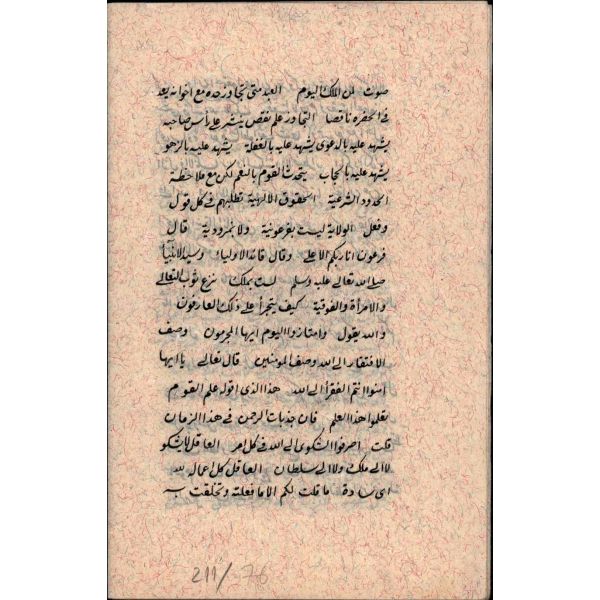 صوت لمن الملك اليوم العبد متى تجاوز حده مع اخوانه يعد
فى الحضرة ناقصا التجاوز علم نقص ينشر على رأس صاحبه
يشهد عليه بالدعوى يشهد عليه بالغفلة يشهد عليه بالزهو
يشهد عليه بالحجاب يتحدث القوم بالنعم لكن مع ملاحظة
الحدود الشرعية الحقوق الالهية تطلبهم فى كل قول
وفعل الولاية ليست بفرعونية ولا نمرودية قال
فرعون انا ربكم الاعلى وقال قائد الاولياء وسيد الانبيآ
صلى الله تعالى عليه وسلم لست بملك نزع ثوب التعالى
والامرأة والفوقية كيف يتجرأ على ذلك العارفون
والله يقول وامتازوا اليوم ايها المجرمون وصف
الافتقار الى الله وصف المؤمنين قال تعالى يا ايها
امنوا انتم الفقرآ الى الله هذا الذى اقول علم القوم
تعلموا هذا العلم فان جذبات الرحمن فى هذا الزمان
قلت اصرفوا الشكوى الى الله فى كل امر العاقل لا يشكو
لا الى ملك ولا الى سلطان العاقل كل اعماله لله
اى سادة ما قلت لكم الا ما فعلته وتخلقت به
211/576